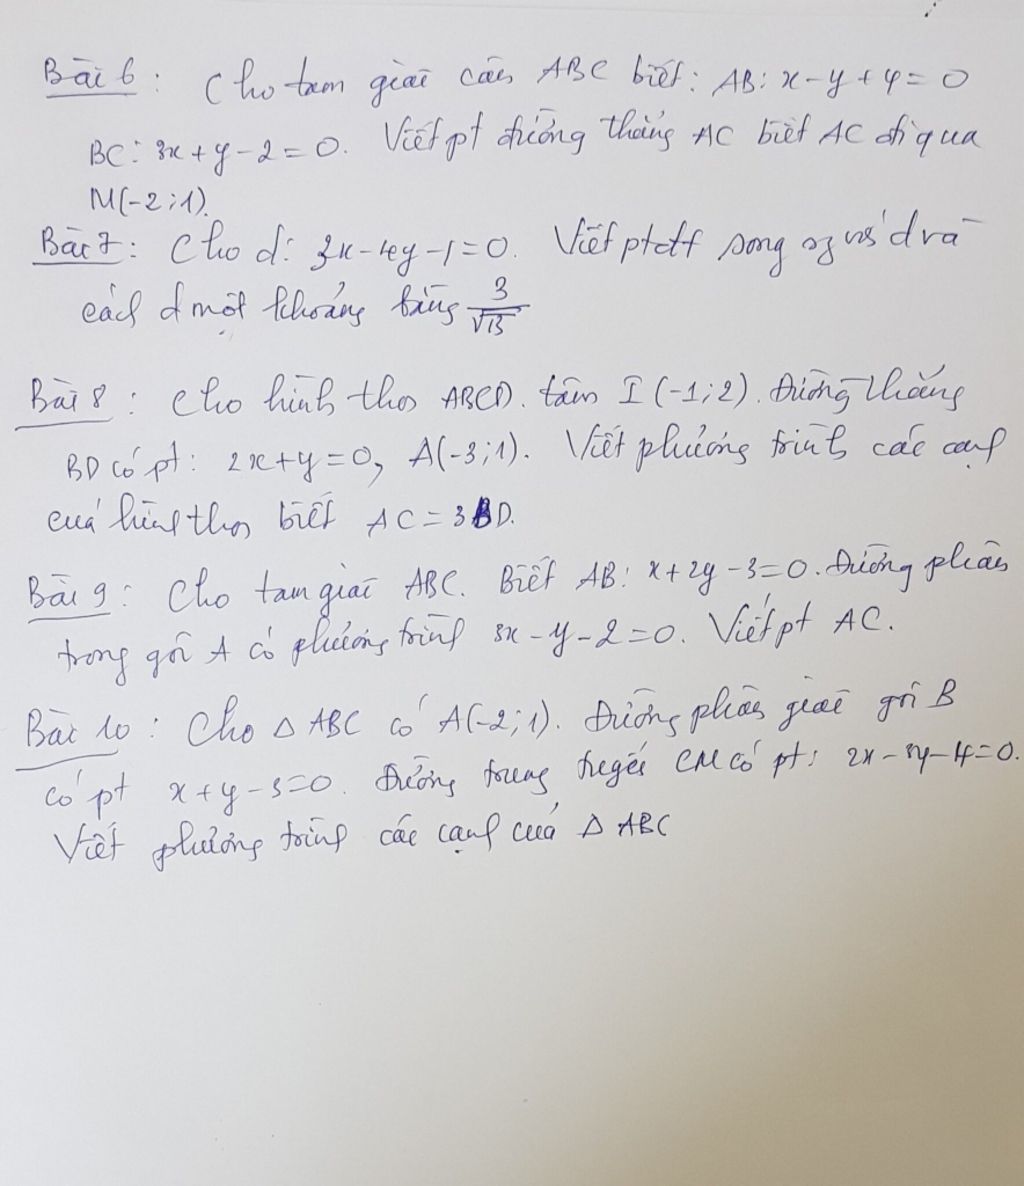 Bài 6 : Cho tam giác cân ABC biết : AB: x - y + 4 = 0
BC : 3x + y - 2 = 0. Viết pt đường thẳng AC biết AC đi qua
M(-2;1).
Bài 7 : Cho d: 3x - 4y - 1 = 0. Viết ptđt song sg với d và
cách d một khoảng bằng 3/√13
Bài 8 : Cho hình thoi ABCD. tâm I (-1;2). Đường thẳng
BD có pt : 2x + y = 0, A(-3;1). Viết phương trình các cạnh
của hình thoi biết AC = 3BD.
Bài 9 : Cho tam giác ABC. Biết AB: x + 2y - 3 = 0. Đường phân
trong góc A có phương trình 3x - y - 2 = 0. Viết pt AC.
Bài 10 : Cho Δ ABC có A(-2;1). Đường phân giác góc B
có pt x + y - 3 = 0. Đường trung tuyến CM có pt: 2x - 3y - 4 = 0.
Viết phương trình các cạnh của Δ ABC